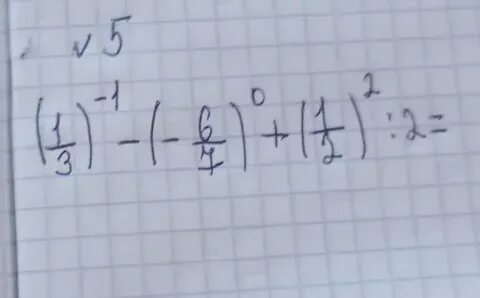 √ 5
(1/3)^-1 - (- 6/7)^0 + (1/2)^2 : 2 =